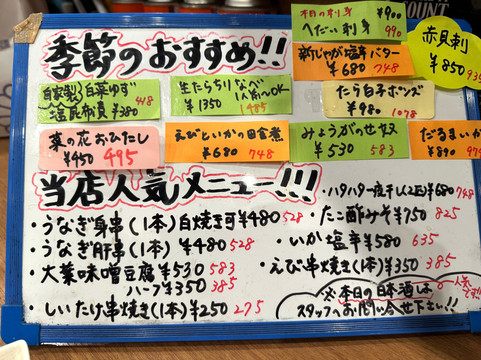 COUNT
季節のおすすめ!!
本日の刺身 ¥900
へだい刺身 990
赤貝刺
¥850 935
新じゃが塩辛バター
¥680 748
自家製 白菜ゆず
塩昆布員 ¥380 418
生たらちり鍋
¥1350 1485
たら白子ポンズ
¥980 1078
菜の花おひたし
¥450 495
えびといかの旨煮
¥680 748
みょうがっせ奴
¥530 583
だるまいか
¥890
当店人気メニュー!!!
・うなぎ身串(1本)白焼き可¥480 528
・うなぎ肝串(1本) ¥480 528
・大葉味噌豆腐¥530 583
ハーフ¥350 385
・しいたけ串焼き(1本)¥250 275
・ハタハタ一夜干し(2匹)¥680 748
・たこ酢みそ¥750 825
・いか塩辛¥580 635
・えび串焼き(1本)¥350 385
※本日の日本酒は
スタッフへお問い合せ下さい!!
人気です!!